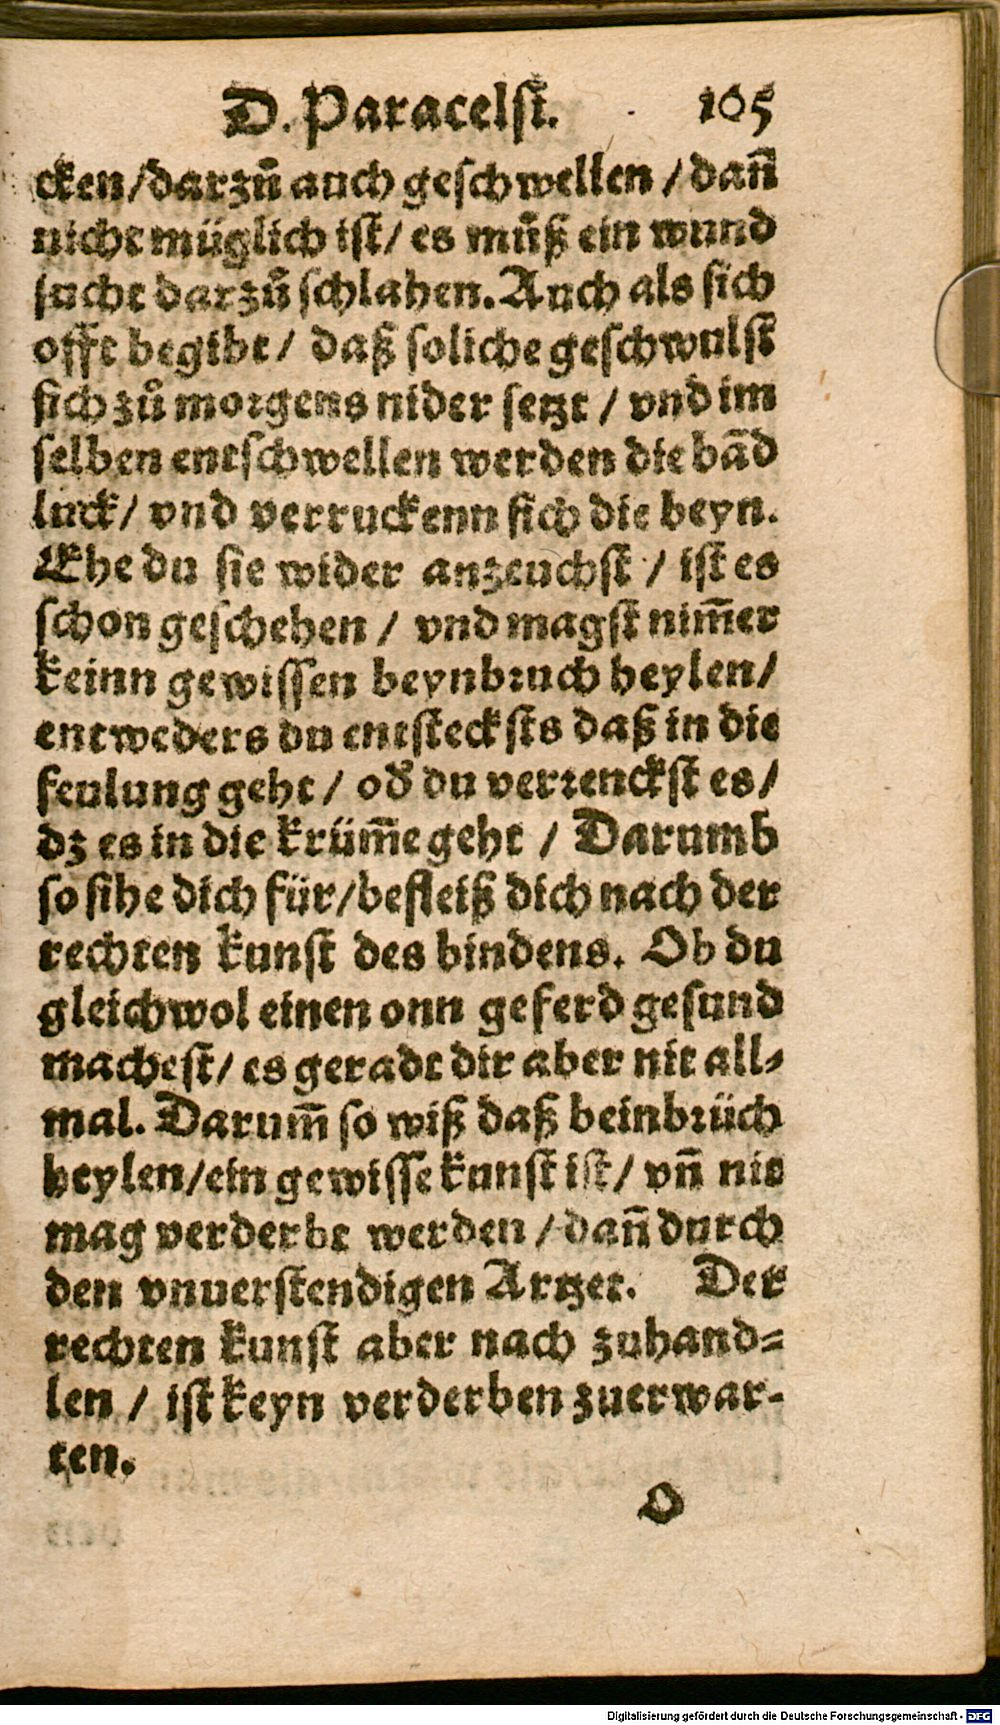 D. Paracelsi. 105
cken/darzů auch geschwellen / dañ
nicht müglich ist/ es můß ein wund
sucht darzů schlahen. Auch als sich
offt begibt / daß soliche geschwulst
sich zů morgens nider setzt / vnd im
selben entschwellen werden die bãd
luck/ vnd verruckenn sich die beyn.
Ehe du sie wider anzeuchst / ist es
schon geschehen / vnd magst nim̃er
keinn gewissen beynbruch heylen/
entweders du entstecksts daß in die
feulung geht / oď du verrenckst es/
dz es in die krüm̃e geht / Darumb
so sihe dich für/befleiß dich nach der
rechten kunst des bindens. Ob du
gleichwol einen onn geferd gesund
machest/ es geradt dir aber nit all-
mal. Darum̃ so wiß daß beinbrüch
heylen/ein gewisse kunst ist/ vñ nit
mag verderbt werden / dañ durch
den vnuerstendigen Artzet. Der
rechten kunst aber nach zuhand-
len / ist keyn verderben zuerwar-
ten.
O
Digitalisierung gefördert durch die Deutsche Forschungsgemeinschaft - DFG